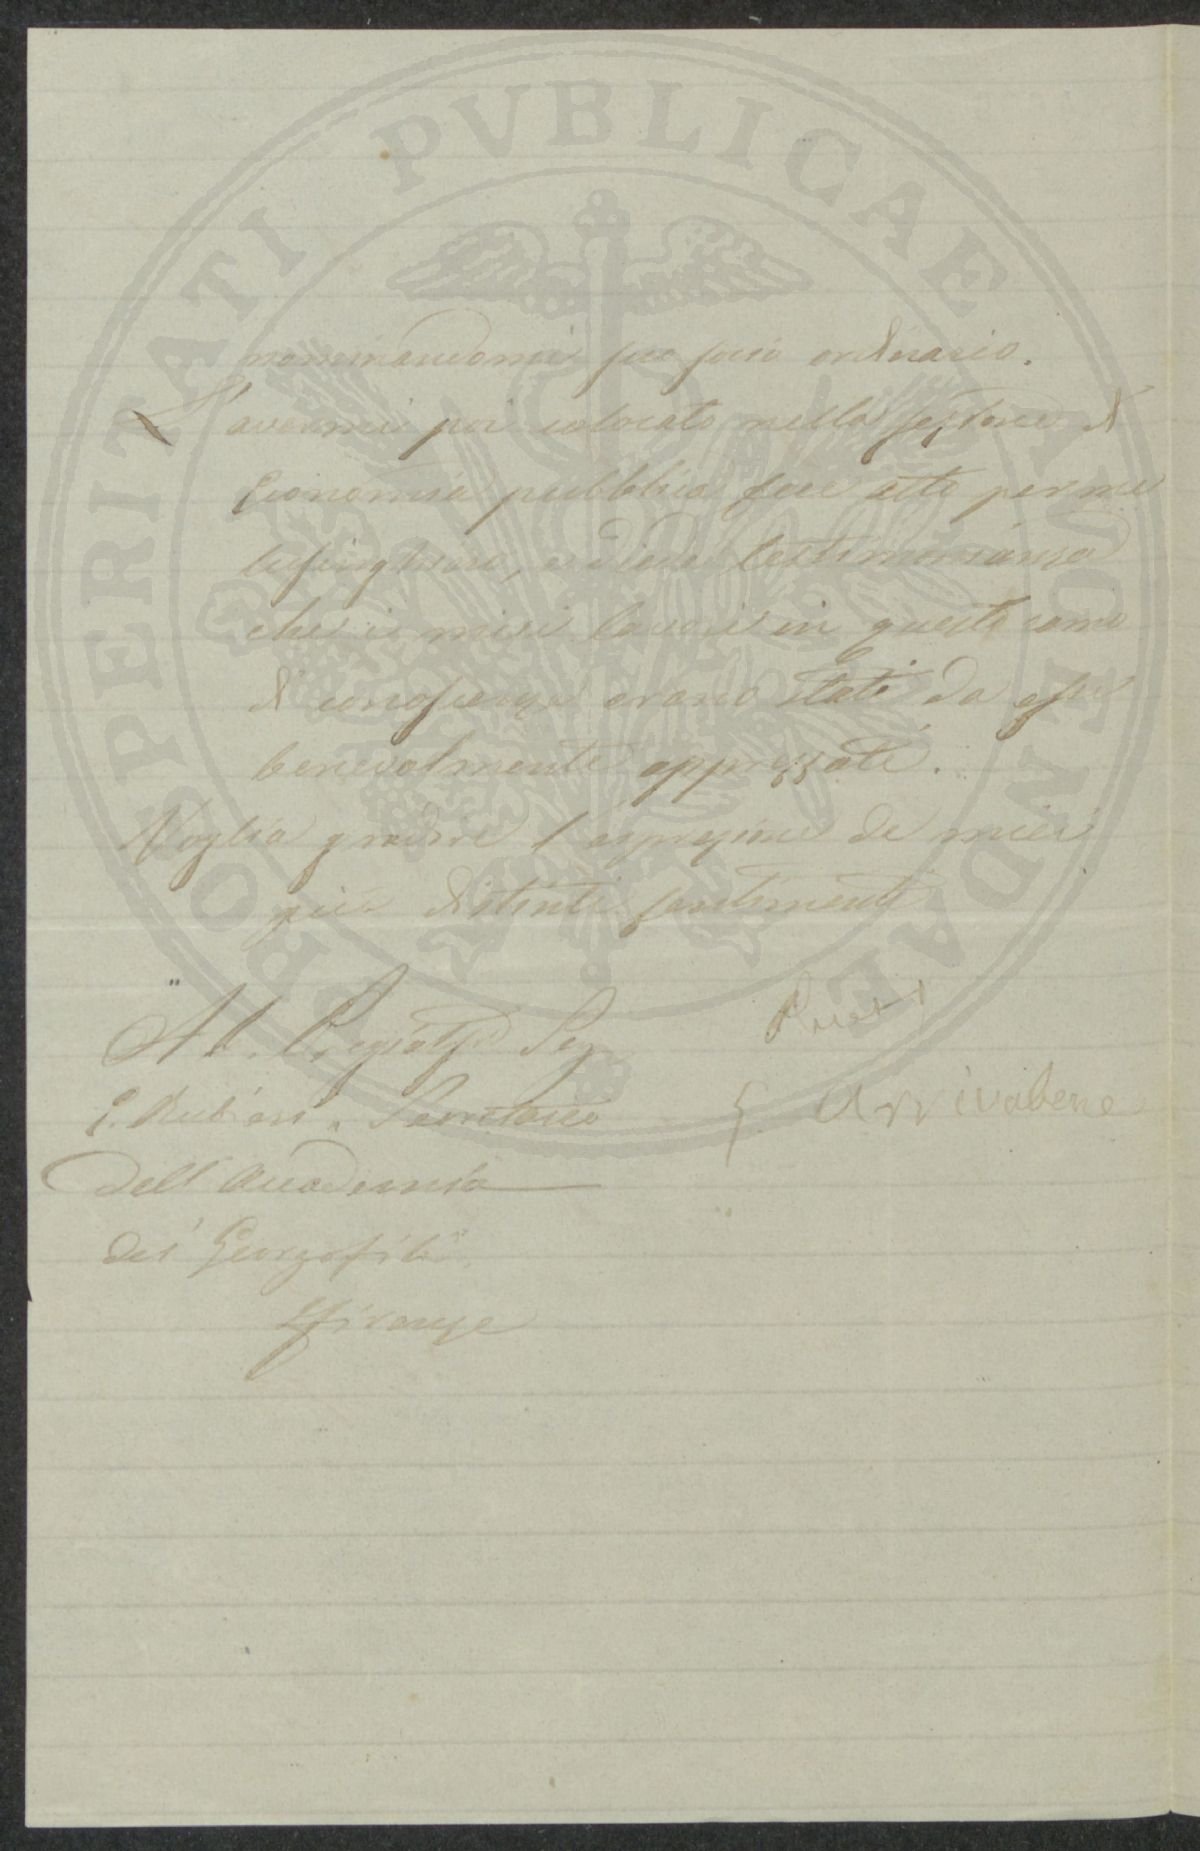 PROSPERITATI PVBLICAE AVGENDAE
nominandomi suo socio ordinario.
L' avermi poi colocato nella sezione di
Economia pubblica fece atto per me
lusinghiero, e diede testimonianza
che i miei lavori in questo ramo
di conoscenze erano stati da essa
benevolmente apprezzati.
Voglia gradire l'espressione de miei
più distinti sentimenti
Al. Pregiatso Sigr
E. Rubieri. Secretario
G. Arrivabene
dell' Accademia
dei Georgofili
Firenze